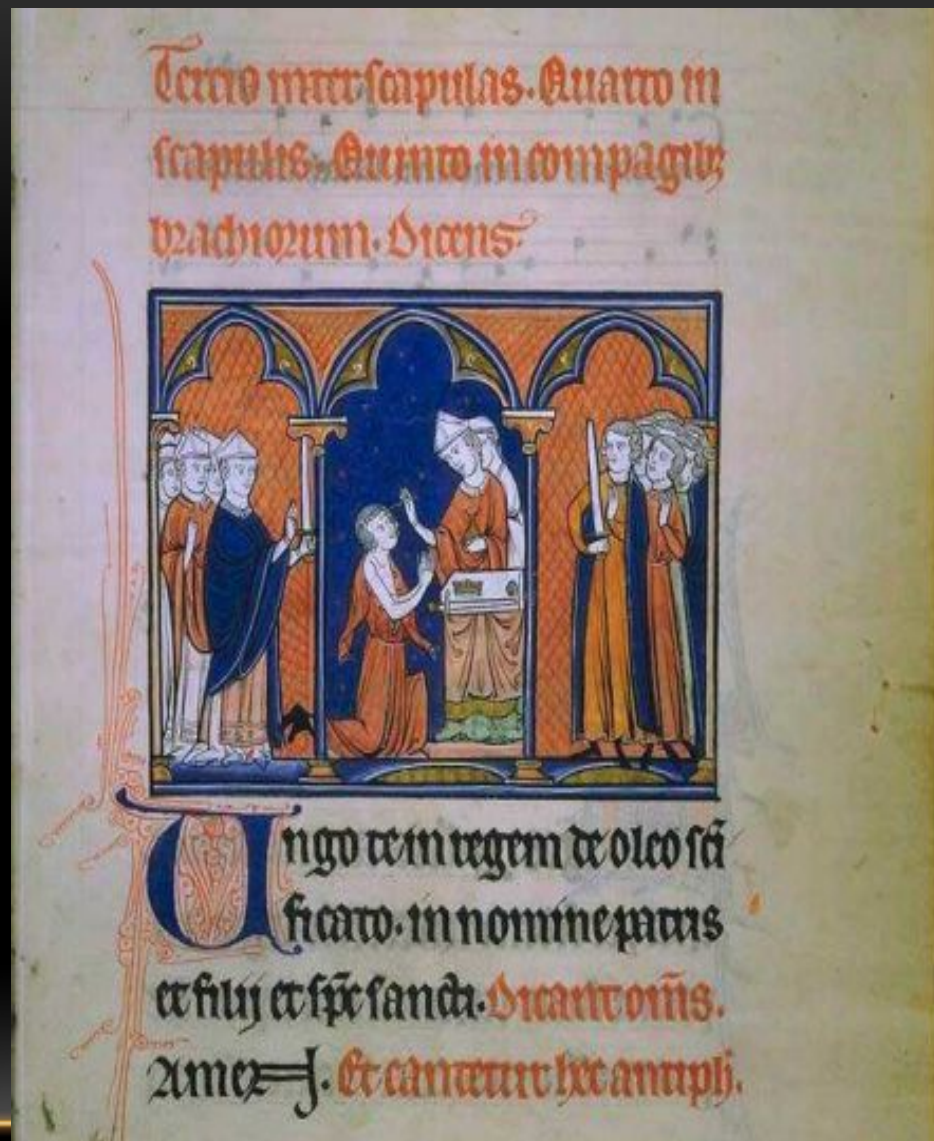 Tercio inter scapulas. Quarto in
scapulis. Quinto in compagib;
brachiorum. Dicens.
Ungo te in regem de oleo scī
ficato. in nomine patris
et filij et sp̄c sancti. Dicant om̄s.
Amen. Et cantetur hec antiph̄.